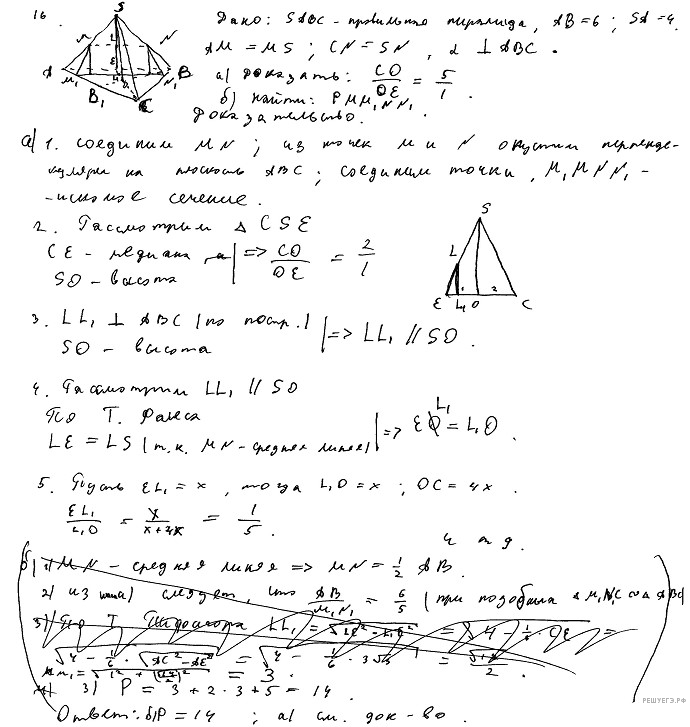 16.
S
A M₁ N₁ B
B₁
Дано: SABC - правильная пирамида, AB = 6; SA = 4.
AM = MS; CN = SN, α ⊥ ABC.
а) доказать: CO/OE = 5/1.
б) найти: P MM₁NN₁
Доказательство.
а) 1. соединим MN; из точек M и N опустим перпенди-
куляры на плоскость ABC; соединим точки, M₁MNN₁ -
- искомое сечение.
2. Рассмотрим Δ CSE
CE - медиана
SO - высота
=> CO/OE = 2/1
S
L
E L₁ O 2 C
3. LL₁ ⊥ ABC (по постр.)
SO - высота
=> LL₁ // SO.
4. Рассмотрим LL₁ // SO
По Т. Фалеса
LE = LS (т.к. MN - средняя линия)
=> EL₁ = L₁O.
5. Пусть EL₁ = x, тогда L₁O = x; OC = 4x.
EL₁/L₁O = x/x+4x = 1/5.
ч т д.
б) 1) MN - средняя линия => MN = 1/2 AB.
2) из следует, что AB/M₁N₁ = 6/5 (при подобии Δ M₁N₁C ~ Δ ABC)
3) По Т. Пифагора LL₁ =
= 3.
3) P = 3 + 2·3 + 5 = 14.
Ответ: б) P = 14; а) см. док-во.
РЕШУЕГЭ.РФ